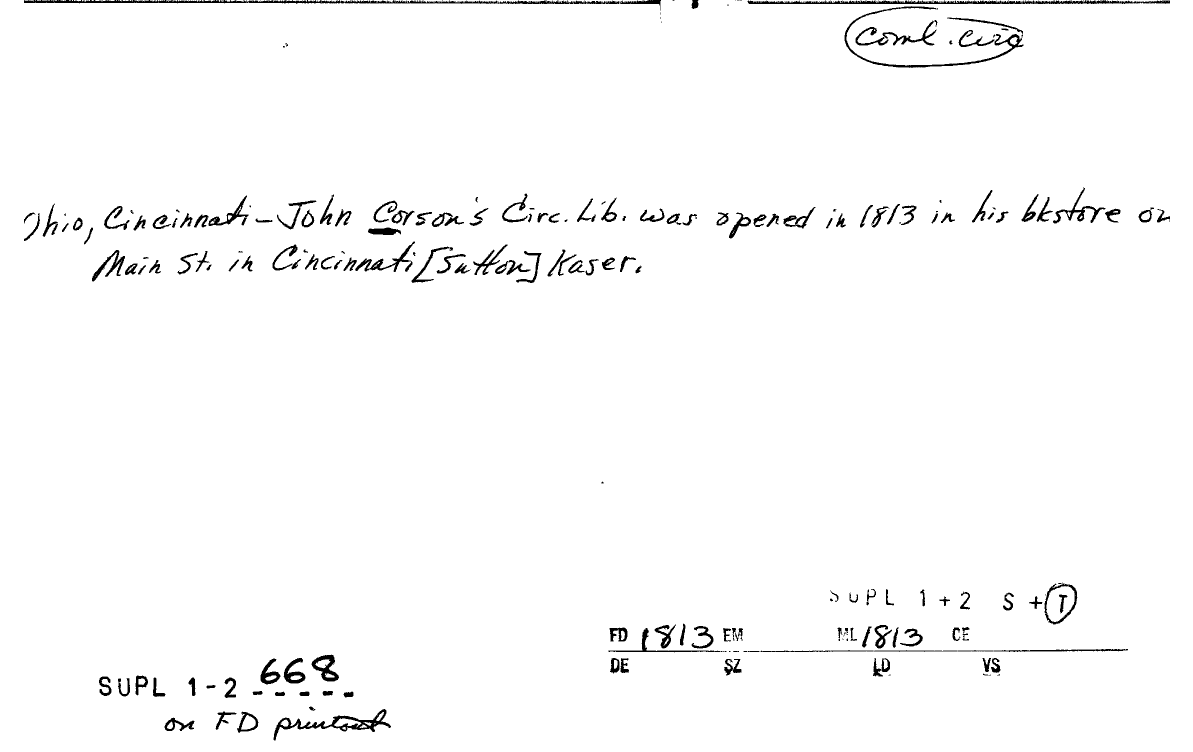 coml. circ
Ohio, Cincinnati - John Corson's Circ. Lib. was opened in 1813 in his bkstore on
Main St. in Cincinnati [Sutton] Kaser.
SUPL 1+2 S + T
FD 1813 EM ML 1813 CE
DE SZ LD VS
SUPL 1-2 668
on FD printout